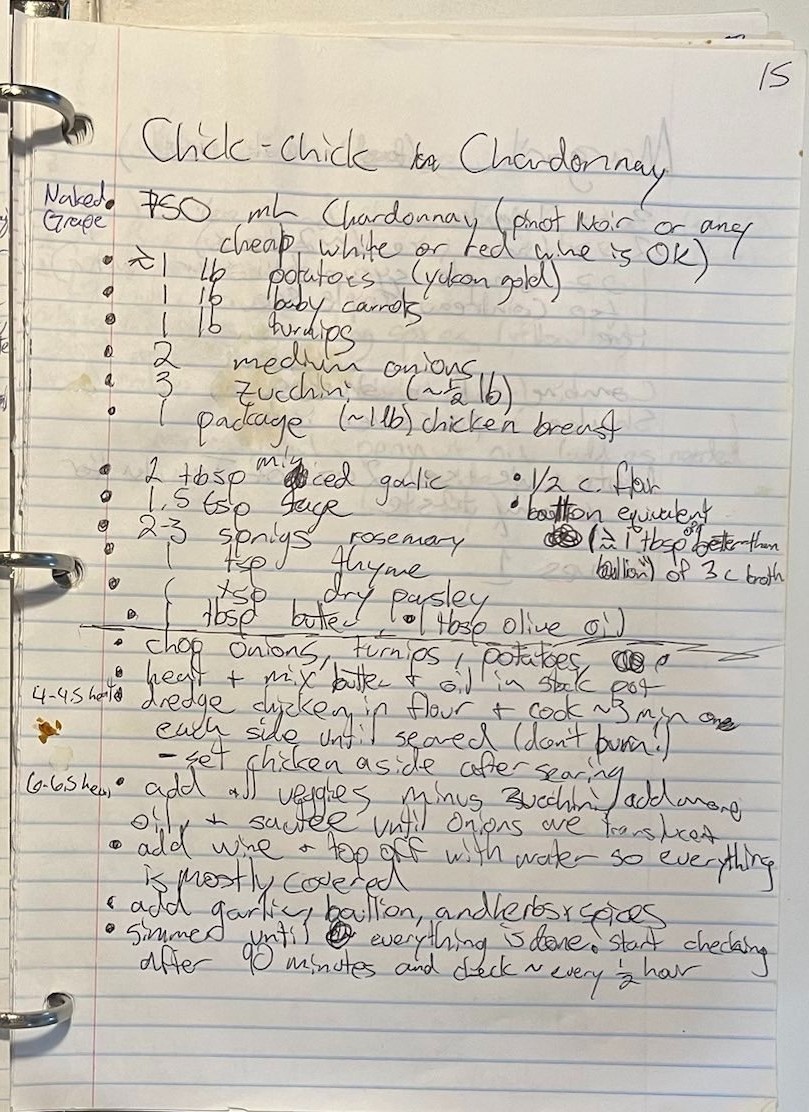 15
Chick-chick in Chardonnay
Naked
Grape
• 750 mL Chardonnay (pinot Noir or any
cheap white or red wine is OK)
• ≈1 lb potatoes (yukon gold)
• 1 lb baby carrots
• 1 lb turnips
• 2 medium onions
• 3 zucchini (~½ lb)
• 1 package (~1lb) chicken breast
• 2 tbsp minced garlic
• 1.5 tsp sage
• 2-3 sprigs rosemary
• 1 tsp thyme
• 1 tsp dry parsley
• 1 tbsp butter, • 1 tbsp olive oil
• 1/2 c. flour
• bouillon equivalent
(≈1 tbsp of better than
bullion) of 3 c broth
• chop onions, turnips, potatoes,
• heat + mix butter + oil in stock pot
4-4.5 heat • dredge chicken in flour + cook ~3 min one
each side until seared (don't burn!)
- set chicken aside after searing
6-6.5 heat • add all veggies minus zucchini/add more
oil, + sautee until onions are translucent
• add wine + top off with water so everything
is mostly covered
• add garlic, bullion, and herbs + spices
• simmer until everything is done. start checking
after 90 minutes and check ~ every ½ hour